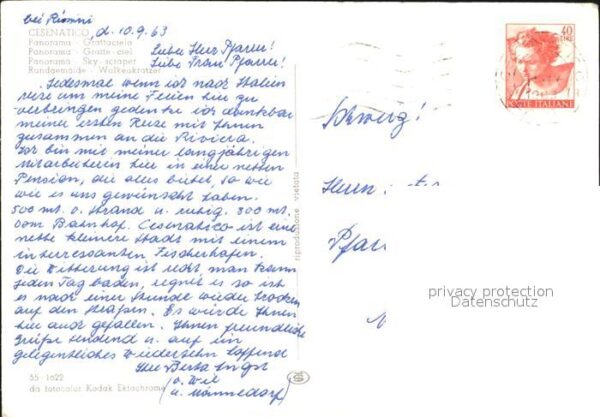 bei Rimini
CESENATICO, d. 10.9.63
Panorama - Grattacielo
Panorama - Gratte-ciel
Panorama - Sky-scraper
Rundgemälde - Wolkenkratzer
Lieber Herr Pfarrer!
Liebe Frau Pfarrer!
Jedesmal wenn ich nach Italien
reise um meine Ferien hier zu
verbringen gedenke ich dankbar
meiner ersten Reise mit Ihnen
zusammen an die Riviera.
Ich bin mit meiner langjährigen
Mitarbeiterin hier in einer netten
Pension, die alles bietet, so wie
wie es uns gewünscht haben.
500 mt. v. Strand u. ruhig. 800 mt.
vom Bahnhof. Cesenatico ist eine
nette kleinere Stadt mit einem
interressanten Fischerhafen.
Die Witterung ist recht, man kann
jeden Tag baden, regnet es so ist
es nach einer Stunde wieder trocken
auf den Straßen. Es würde Ihnen
hier auch gefallen. Ihnen freundliche
Grüße sendend u. auf ein
gelegentliches Wiedersehn hoffend
Ihre Berta
(u. Männedorf)
55 - 1622
da fotocolor Kodak Ektachrome
riproduzione vietata
40
LIRE
POSTE ITALIANE
Schweiz!
Herrn
Pfar
privacy protection
Datenschutz